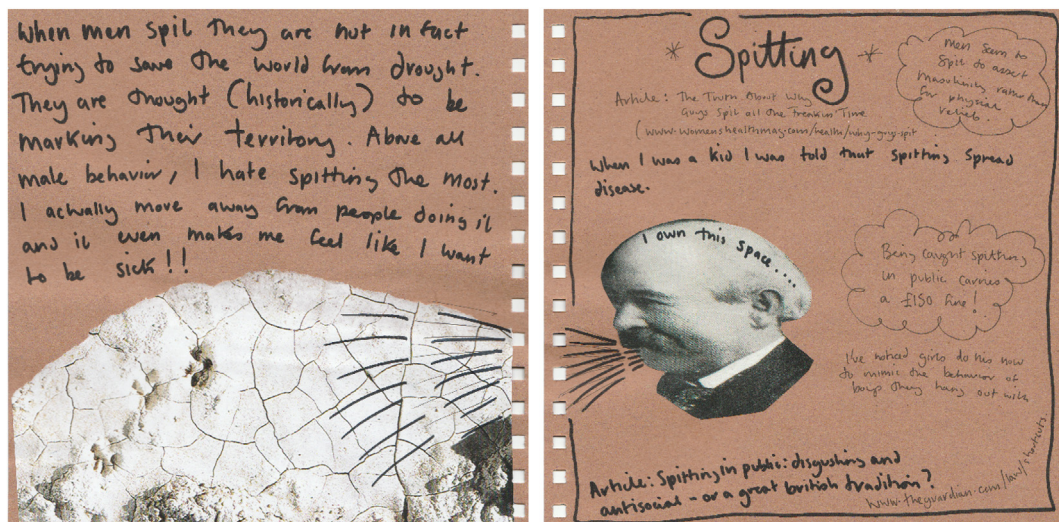 When men spit they are not in fact
trying to save the world from drought.
They are thought (historically) to be
marking their territory. Above all
male behavior, I hate spitting the most.
I actually move away from people doing it
and it even makes me feel like I want
to be sick!!
* Spitting *
Men seem to
spit to assert
masculinity rather than
for physical
relief.
Article: The Truth About Why
Guys Spit all the Freakin' Time
(www.womenshealthmag.com/health/why-guys-spit
When I was a kid I was told that spitting spread
disease.
I own this space....
Being caught spitting
in public carries
a £150 fine!
I've noticed girls do this now
to mimic the behavior of
boys they hang out with
Article: Spitting in public: disgusting and
antisocial - or a great british tradition?
www.theguardian.com/law/shortcuts